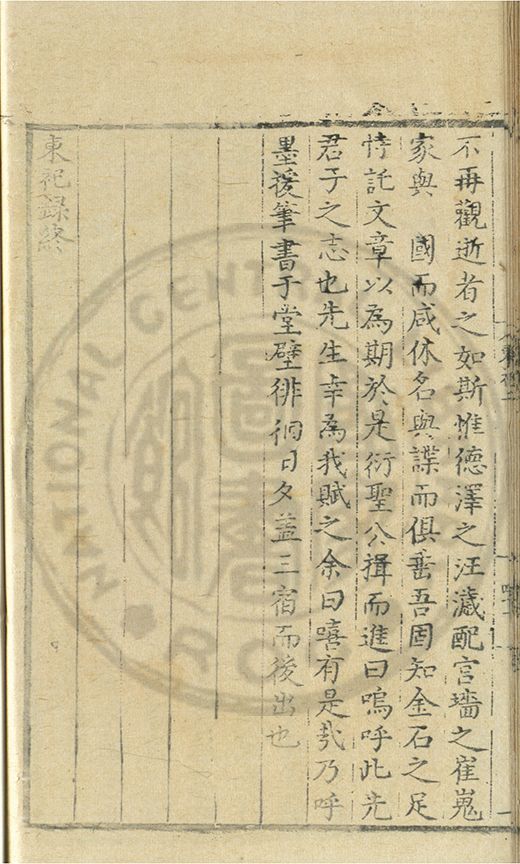 不再觀逝者之如斯惟德澤之汪濊配宮墻之崔嵬
家與 國而咸休名與諜而俱垂吾固知金石之足
恃託文章以為期於是衍聖公揖而進曰嗚呼此先
君子之志也先生幸為我賦之余曰嘻有是哉乃呼
墨援筆書于堂壁徘徊日夕盖三宿而後出也
東祀録終